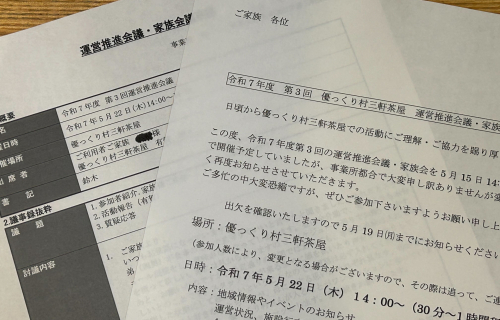 運営推進会議・家族会議
事業
概要
名
令和7年度 第3回運営推進会議
日時
令和7年5月22日(木)14:00~
開催場所
優っくり村三軒茶屋
出席者
ご利用者ご家族 様
優っくり村三軒茶屋
書記
鈴木
2.議事録抜粋
議題
1.参加者紹介、家族
2.活動報告(有
3.質疑応答
討議内容
1. ご家族
いつ
ご家族 各位
令和7年度 第3回 優っくり村三軒茶屋 運営推進会議・家族
日頃から優っくり村三軒茶屋での活動にご理解・ご協力を賜り厚
この度、令和7年度第3回の運営推進会議・家族会を5月15日14:
で開催予定していましたが、事業所都合で大変申し訳ありませんが変
く再度お知らせさせていただきます。
ご多忙の中大変恐縮ですが、ぜひご参加下さいますようお願い申し上
出欠を確認いたしますので5月19日(月)までにお知らせください
場所:優っくり村三軒茶屋
(参加人数により、変更となる場合がございますので、その際は追って、ご連
日時:令和7年5月22日(木) 14:00~(30分~1時間
内容:地域情報やイベントのお知らせ
運営状況、施設